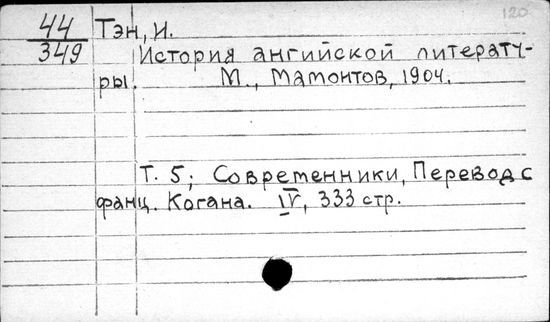 120
44 Тэн, И.
349 История ангийской литерату-
ры. М., Мамонтов, 1904.
Т. 5; Современники, Перевод с
франц. Когана. IV, 333 стр.